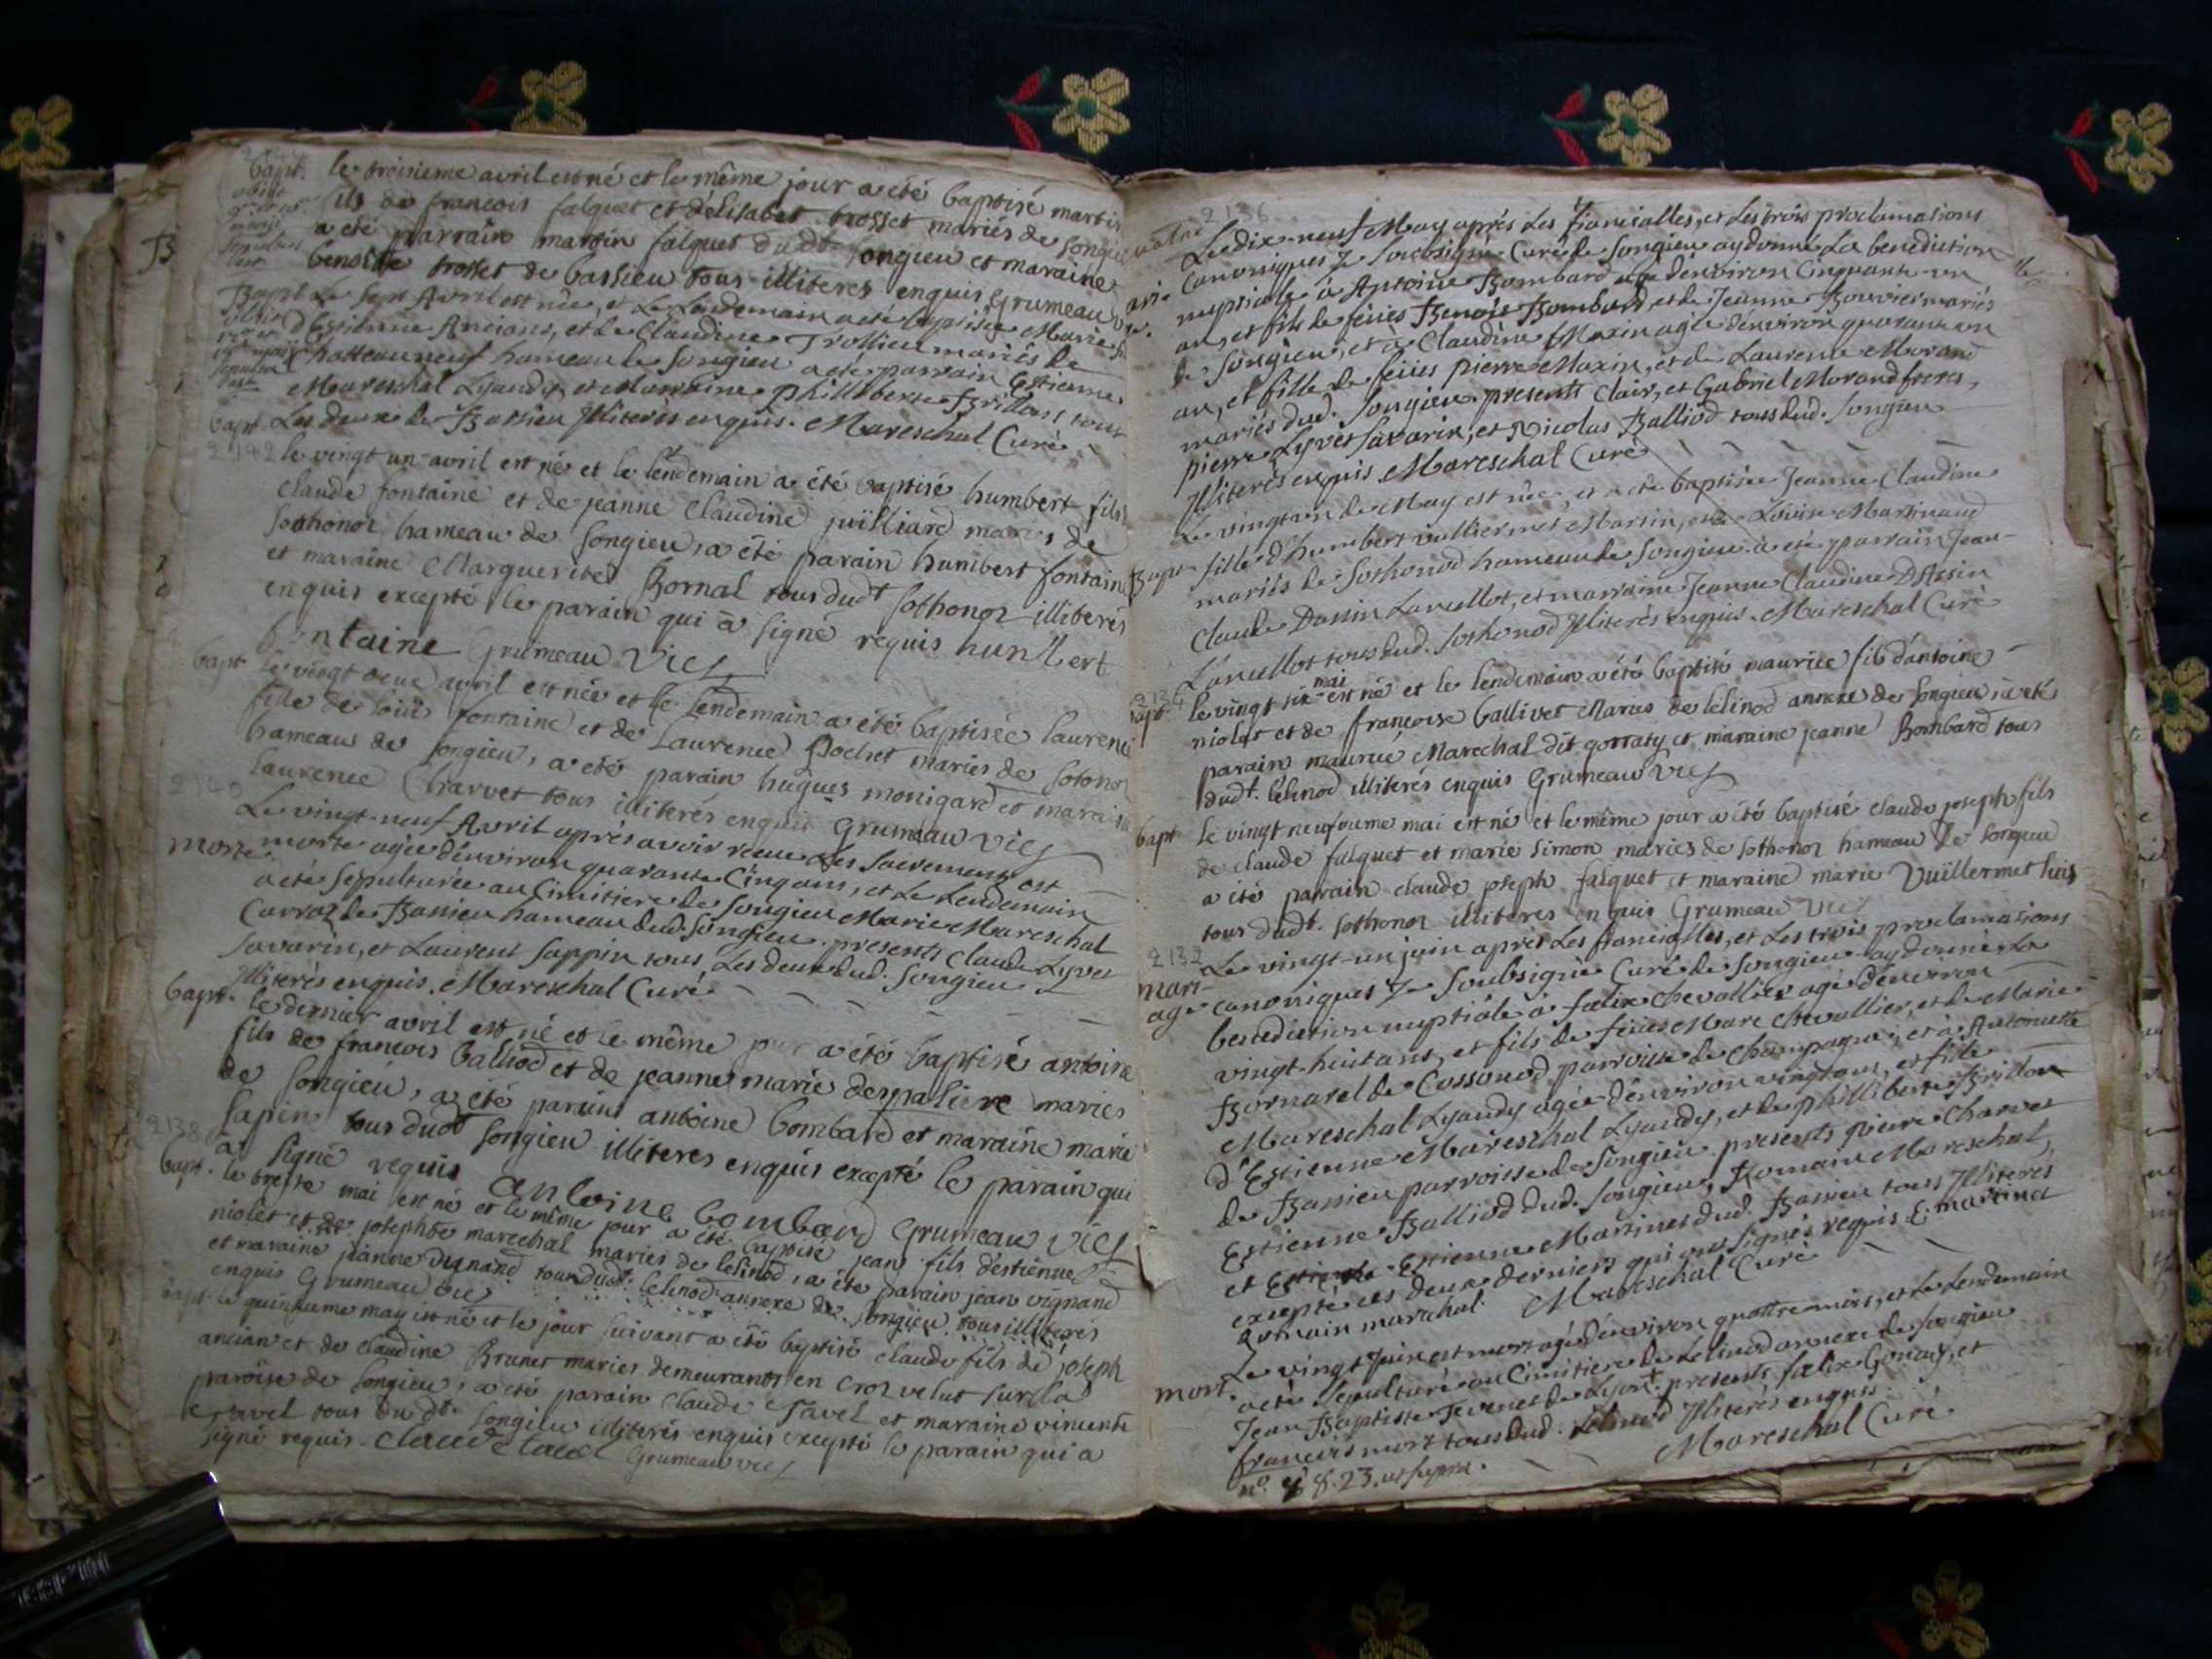 bapt. le troisieme avril est né et le même jour a été baptisé martin
fils de francois falquet et délisabet trosset mariés de songieu
a été parrain martin falquet dudt songieu et maraine
benoite trosset de bassieu tous illiteres enquis Grumeau
Bapt Le sept Avril est née, et Le Lendemain a eté baptisée Marie
d'Estienne Anciant, et de Claudine Trollieu mariés de
Chatteauneuf hameau de Songieu a eté parrain Estienne
Mareschal Lyaudy, et Marraine Phillberte Brillon, tous
Les deux de Bassieu Jlliterés enquis. Mareschal Curé
bapt.
2142 le vingt un avril est né et le lendemain a été baptisé humbert fils
claude fontaine et de jeanne claudine juilliard mariés de
Sothonot hameau de songieu, a été parain humbert fontaine
et maraine Marguerite Bornal tous dudt sothonot illiterés
enquis excepté le parain qui a signé requis humbert
fontaine Grumeau Vic
bapt le vingt deux avril est née et le lendemain a été baptisée laurence
fille de loüi fontaine et de Laurence Pochet mariés de Sotonot
hameau de songieu, a été parain hugues monigard et maraine
2140 laurence Charvet tous illiterés enquis Grumeau Vic
Le vingt-neuf Avril aprés avoir receu Les sacrements est
morte morte agée d'environ quarante Cinq ans, et Le Lendemain
a eté sepulturée au Cimitiere de Songieu Marie Mareschal
Carroz de Bassieu hameau dud. Songieu. presents Claude Lyvet
Savarin, et Laurent Sappin tous Les deux dud. Songieu
Jlliterés enquis. Mareschal Curé
bapt. le dernier avril est né et le même jour a été baptisé antoine
fils de francois balliod et de jeanne marie despaliere mariés
de songieu, a été parain antoine bombard et maraine marie
2138 sapin tous dudt songieu illiteres enquis excepté le parain qui
a signé requis antoine bombard Grumeau Vic
bapt. le treize mai est né et le même jour a été baptisé jean fils d'estienne
niolet et de josephte marechal mariés de lelinod, a été parain jean vignand
et maraine jeanne vignand tous dudt. lelinod annexe de songieu tous illiterés
enquis Grumeau vic
bapt. le quinzieme may est né et le jour suivant a été baptisé claude fils de joseph
ancian et de claudine Brunet mariés demeurants en croz velut sur la
paroisse de songieu, a été parain claude Tavel et maraine vincente
Tavel tous dudt. songieu illiterés enquis excepté le parain qui a
signé requis. claude tavel Grumeau vic
2136
Le dix-neuf May aprés Les fiancialles, et Les trois proclamations
canoniques Je soubsigné Curé de Songieu ay donné La benediction
nuptiale à Antoine Bombard agé d'environ Cinquante-un
an, et fils de feües Benoit Bombard, et de Jeanne Bouvier mariés
de Songieu, et à Claudine Maxin agée d'environ quarante un
an, et fille de feües pierre Maxin, et de Laurence Morand
mariés dud. Songieu. presents Clair, et Gabriel Morand freres,
pierre Lyvet Savarin, et Nicolas Balliod tous dud. Songieu
Jlliterés enquis. Mareschal Curé
Le vingt un de May est née, et a eté baptisée Jeanne Claudine
Bapt fille d'humbert vulliermet Martin, et de Louise Martinand
mariés de Sothonod hameau de Songieu a eté parrain Jean-
Claude Dassin Lancellot, et marraine Jeanne Claudine Dassin
Lancellot tous dud. Sothonod Jlliterés enquis. Mareschal Curé
2134
bapt le vingt six mai est né et le lendemain a été baptisé maurice fils d'antoine
niolet et de francoise ballivet mariés de lelinod annexe de songieu a été
parain maurice Marechal dit gottaty et maraine jeanne Bombard tous
dudt. lelinod illiterés enquis Grumeau Vic
bapt le vingt neufieume mai est né et le même jour a été baptisé claude joseph fils
de claude falquet et marie simon mariés de sothonot hameau de songieu
a été parain claude joseph falquet et maraine marie Vuillermet
tous dudt. sothonot illiteres enquis Grumeau Vic
2132
Le vingt-un juin aprés Les fiancialles, et Les trois proclamations
mari-age canoniques Je soubsigné Curé de Songieu ay donné La
benediction nuptiale à fœlix Chevallier agé d'environ
vingt-huit ans, et fils de feües Marc Chevallier, et de Marie
Bornarel de Cossonod parroisse de Champagne, et à Antoinette
Mareschal Lyaudy agée d'environ vingt ans, et fille
d'Estienne Mareschal Lyaudy, et de phillberte Brillon
de Bassieu parroisse de Songieu. presents pierre Charvet
Estienne Balliod dud. Songieu, Romain Mareschal,
et Estienne Martinet dud. Bassieu tous Jlliterés
excepté ces deux derniers qui ont signés requis. E. martinet
Romain marechal. Mareschal Curé
Le vingt Juin est mort agé d'environ quattre mois, et Le Lendemain
mort. a eté sepulturé au Cimitiere de Lelinod annexe de Songieu
Jean Baptiste Tevenet de Lyon. presents fœlix Gonay, et
francois mort tous dud. Lelinod Jlliterés enquis
Mareschal Curé
n°. 8. 23. ut supra.